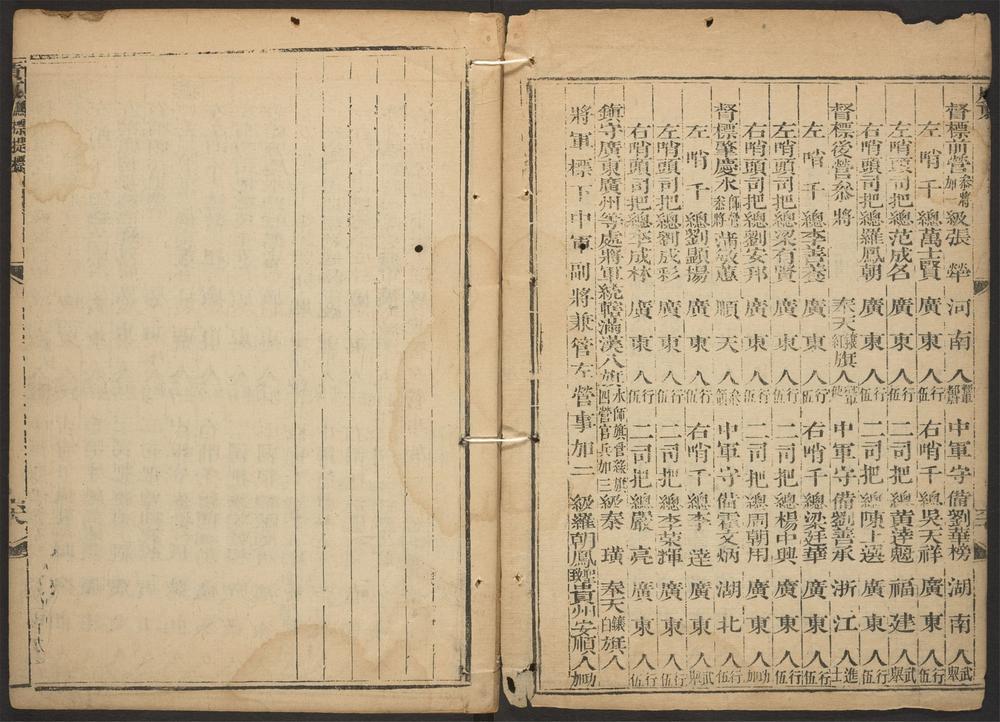 廣東
督標前營叅將加一級張犖 河南人 中軍守備劉華榜 湖南人武舉
左哨千總萬士賢 廣東人行伍 右哨千總吳天祥 廣東人行伍
左哨頭司把總范成名 廣東人行伍 二司把總黃達魁 福建人武舉
右哨頭司把總羅鳳朝 廣東人行伍 二司把總陳上選 廣東人行伍
督標後營叅將 奉天鑲紅旗人 中軍守備劉善承 浙江人進士
左哨千總李善養 廣東人行伍 右哨千總梁廷華 廣東人行伍
左哨頭司把總梁有賢 廣東人行伍 二司把總楊中興 廣東人行伍
右哨頭司把總劉安邦 廣東人行伍 二司把總周朝用 廣東人功加
督標肇慶水師營叅將蒲敏蕙 順天人 中軍守備霍文炳 湖北人行伍
左哨千總劉顯揚 廣東人行伍 右哨千總李達 廣東人武舉
左哨頭司把總劉成彩 廣東人行伍 二司把總李荣輝 廣東人行伍
右哨頭司把總李成林 廣東人行伍 二司把總嚴亮 廣東人行伍
鎮守廣東廣州等處將軍統轄滿漢八旗水師旗營綠旗四營官兵加三級秦璜 奉天鑲白旗人
將軍標下中軍副將兼管左營事加二級羅朝鳳 貴州安順人功加
標提標